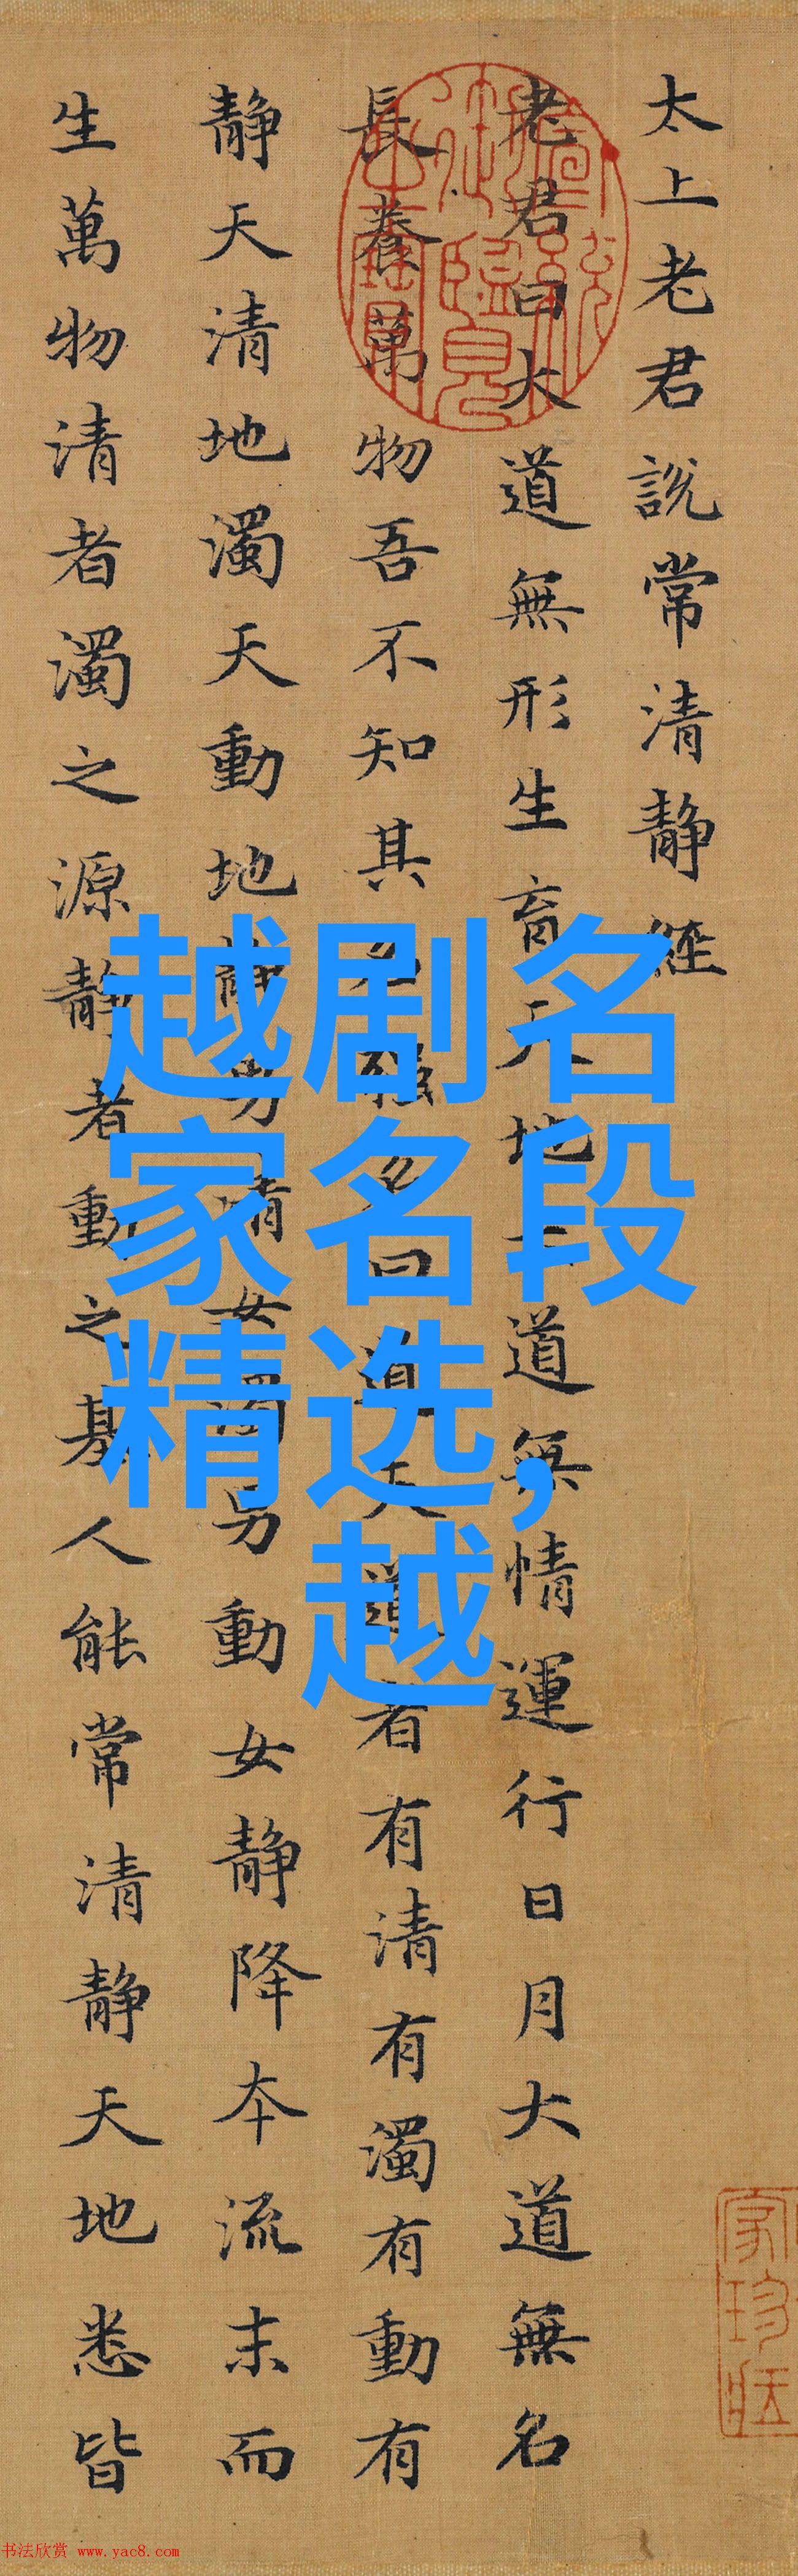 太上老君說常清靜經
老君曰大道無形生育天地大道無情運行日月大道無名
長養萬物吾不知其名強名曰道夫道者有清有濁有動有
靜天清地濁天動地靜男清女濁男動女靜降本流末而
生萬物清者濁之源靜者動之基人能常清靜天地悉皆
越剧名
家名段
精选,
越
书法欣赏 www.yac8.com